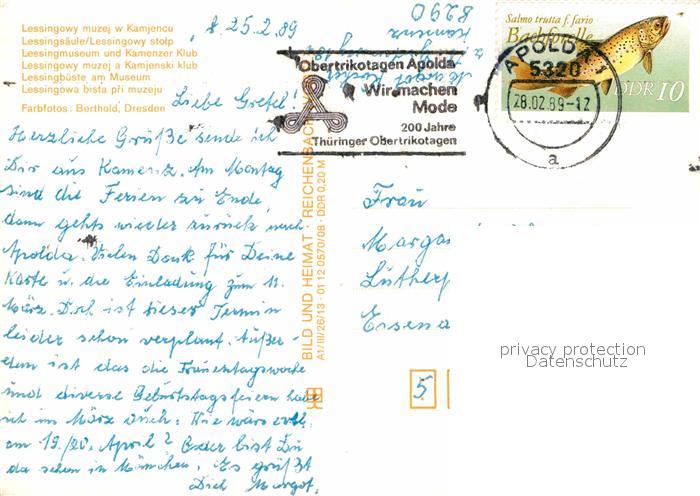 Lessingowy muzej w Kamjencu
Lessingsäule/Lessingowy stołp
Lessingmuseum und Kamenzer Klub
Lessingowy muzej a Kamjenski klub
Lessingbüste am Museum
Lessingowa bista při muzeju
Farbfotos: Berthold, Dresden
25.2.89
Liebe Gretel!
Herzliche Grüße sende ich
Dir aus Kamenz. Am Montag
sind die Ferien zu Ende,
dann gehts wieder zurück nach
Apolda. Vielen Dank für Deine
Karte u. die Einladung zum 11.
März. Doch ist dieser Termin
leider schon verplant. Außer-
dem ist das die Frauentagswoche
und diverse Geburtstagsfeiern habe
ich im März auch. Wie wärs evtl.
am 19./20. April? Oder bist Du
da schon in München. Es grüßt
Dich Margot.
BILD UND HEIMAT REICHENBACH
A1/III/26/13 · 01 12 0570/08 · DDR 0,20 M
8290
Kamenz
Obertrikotagen Apolda
Wir machen
Mode
200 Jahre
Thüringer Obertrikotagen
Salmo trutta f. fario
Bachforelle
DDR 10
APOLDA 1
5320
28.02.89-12
a
Frau
Marga
Lutherp
Eisena
5
privacy protection
Datenschutz